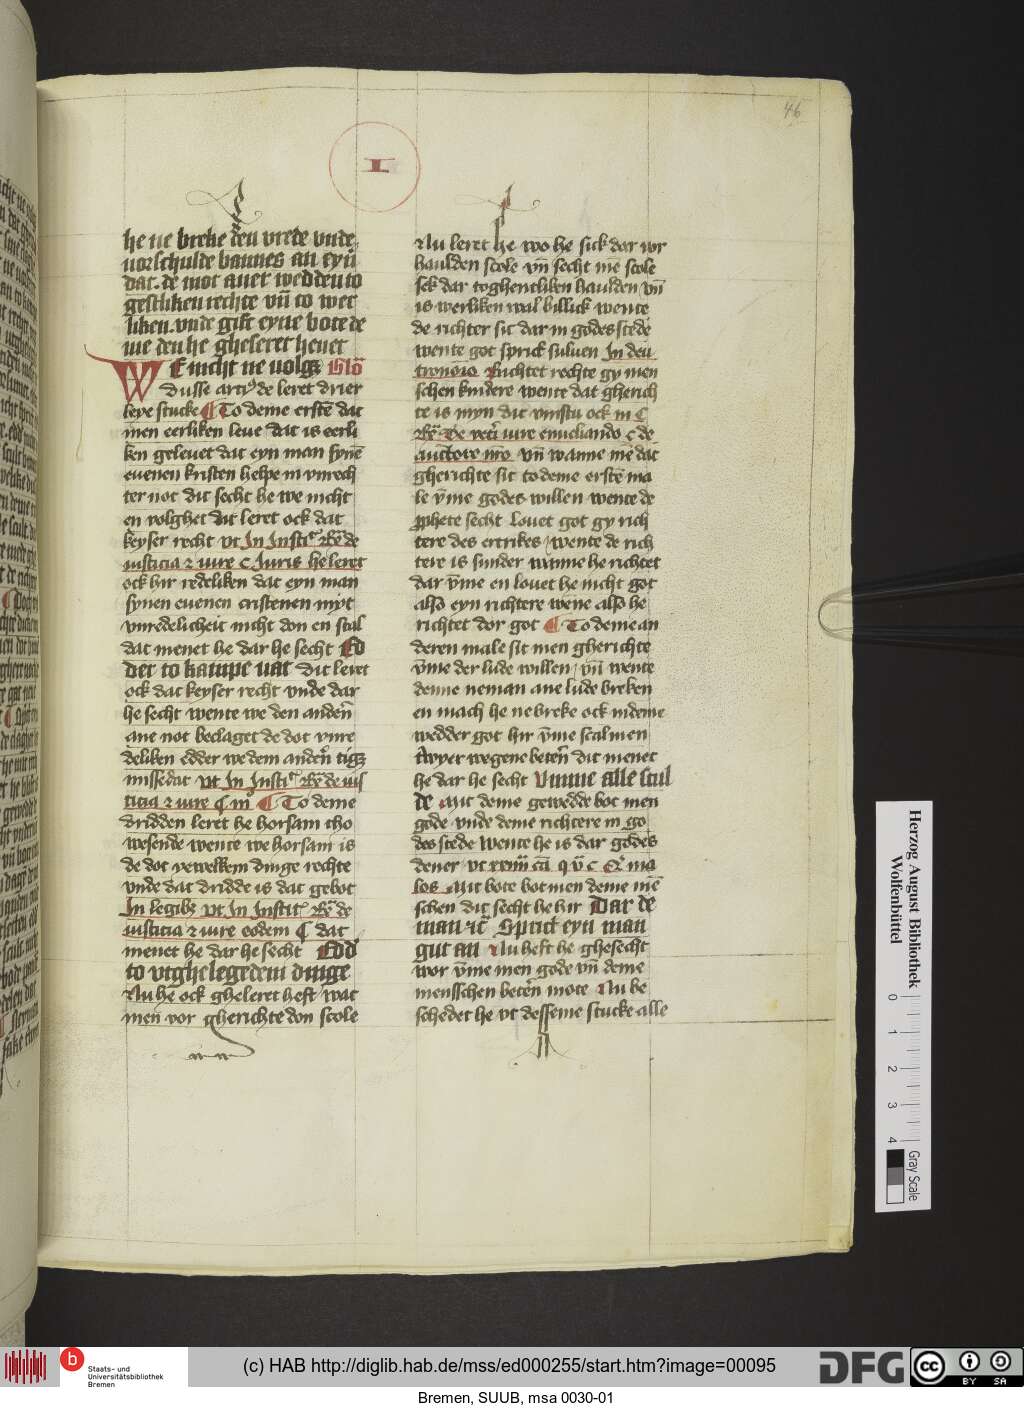 46
I
he ne breke den vrede vnde
vorschulde bannes an eyn
dat. de mot auer wedden to
gestliken rechte vn̄ to wer
liken. vnde gift eyne bote de
me den he gheseret heuet
WE nicht ne volgz Glo
Dusse artyͨ de leret drier
leye stucke ¶ To deme erstē dat
men eerliken leue dat is eerli
ken geleuet dat eyn man synē
euenen kristen helpe in vnrech
ter not dit secht he we nicht
en volghet dit leret ock dat
keyser recht vt In Insti
iusticia ⁊ iure c Iuris he leret
ock hir redeliken dat eyn man
synen euenen cristenen myt
vnredelicheit nicht don en scal
dat menet he dar he secht Ed
der to kampe uar dit leret
ock dat keyser recht vnde dar
he secht wente we den andern̄
ane not beclaget de dot vnre
deliken edder we dem andern̄
missedat vt In Insti de ius
ticia ⁊ iure ¶ To deme
dridden leret he horsam tho
wesende wente we horsam is
de dot yewelkem dinge rechte
vnde dat dridde is dat gebot
In legibꝫ vt In Instit de
iusticia ⁊ iure eodem ¶ dat
menet he dar he secht Edd'
to vtghelegedem dinge
Nu he ock gheleret heft wat
men vor gherichte don scole
Nu leret he wo he sick dar vor
haulden scole vn̄ secht mē scole
sek dar toghentliken haulden vn̄
is werliken wal billick wente
de richter sit dar in godes stede
wente got sprict suluen In deu
tronoio Richtet rechte gy men
schen kindere wente dat gherich
te is myn dit vinstu ock in C
de
auctore nro vn̄ wanne mē dat
gherichte sit to deme erstē ma
le v̄me godes willen wente de
ꝓphete secht Louet got gy rich
tere des ertrikes wente de rich
tere is sunder wanne he richtet
dar v̄me en louet he nicht got
also eyn richtere wene also he
richtet dor got ¶ To deme an
deren male sit men gherichte
v̄me der lude willen vn̄ wente
denne neman ane lude breken
en mach he ne breke ock indeme
wedder got hir v̄me scal men
twyer wegene betern̄ dit menet
he dar he secht Umme alle scul
de Mit deme gewedde bot men
gode vnde deme richtere in go
des stede wente he is dar godes
dener vt xxiii cā q v̄ c ma
los Mit bote bot men deme mē
schen dit secht he hir Dar de
man Sprict eyn man
gut an Nu heft he ghesecht
wor v̄me men gode vn̄ deme
mensschen betern̄ mote Nu be
schedet he vt desseme stucke alle
Herzog August Bibliothek
Wolfenbüttel
0 1 2 3 4
Gray Scale
b
Staats- und
Universitätsbibliothek
Bremen
(c) HAB http://diglib.hab.de/mss/ed000255/start.htm?image=00095
DFG
cc
BY SA
Bremen, SUUB, msa 0030-01